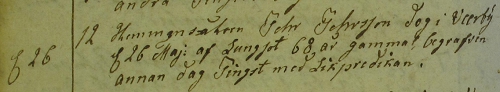 12 Hemmansåkern Pehr Pehrsson dog i Veerby
d 26 d 26 Maj: af Lungsot 68 år gammal begrafven
annan dag Pingst med Likpredikan.